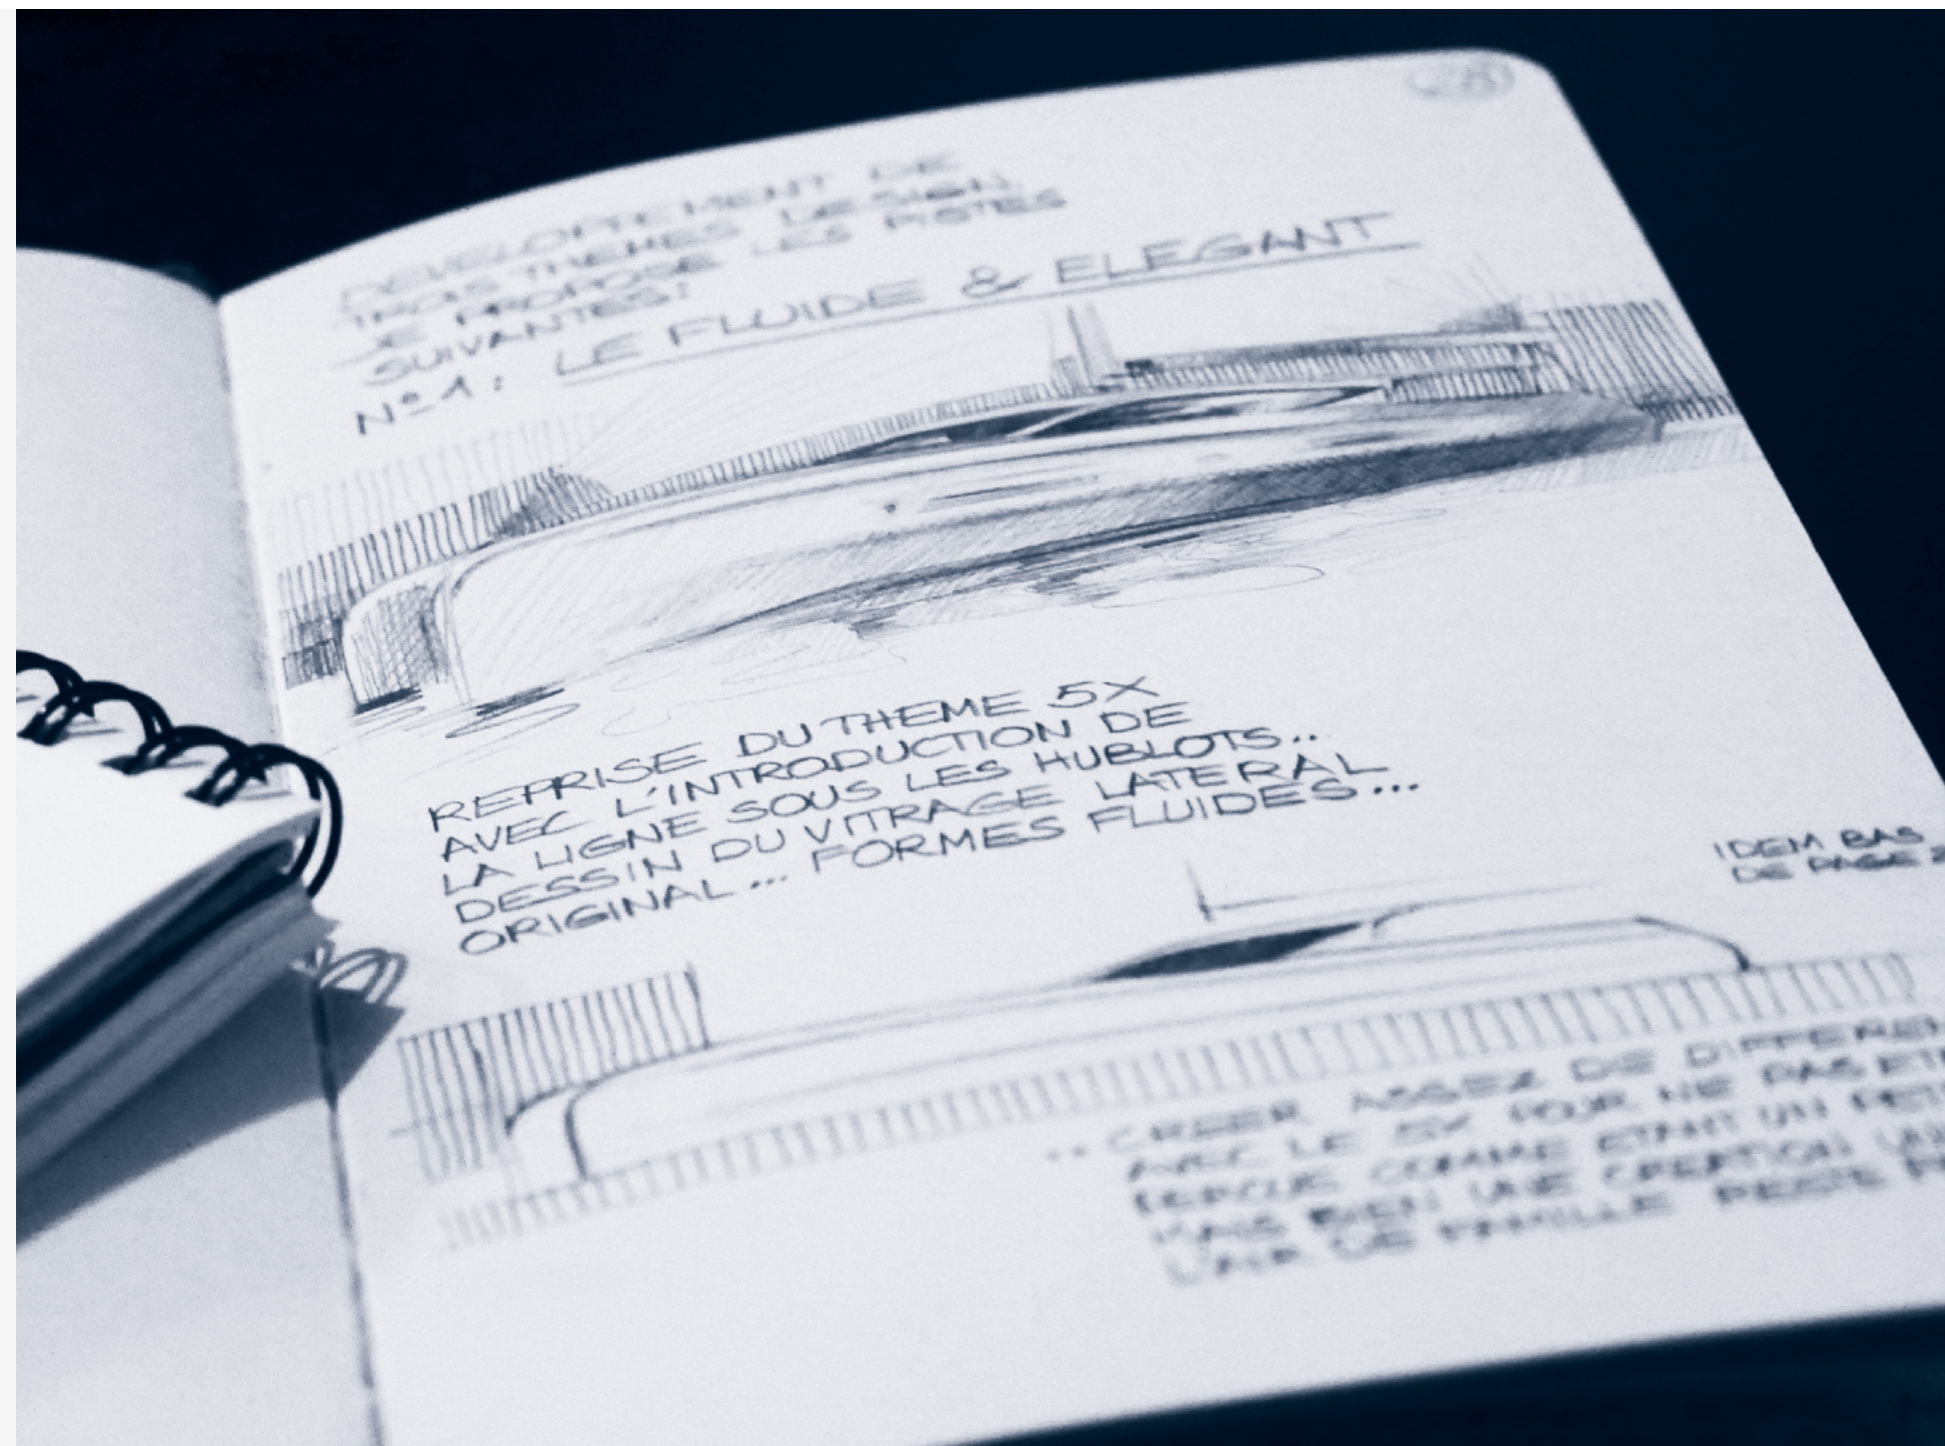 DEVELOPPEMENT DE
TROIS THEMES DESIGN,
JE PROPOSE LES PISTES
SUIVANTES:
Nº1: LE FLUIDE & ELEGANT
REPRISE DU THEME 5X
AVEC L'INTRODUCTION DE
LA LIGNE SOUS LES HUBLOTS..
DESSIN DU VITRAGE LATERAL
ORIGINAL... FORMES FLUIDES...
IDEM BAS
DE PAGE
.. CREER ASSEZ DE DIFFEREN
AVEC LE 5X POUR NE PAS ET
PERÇUE COMME ETANT UN PETI
MAIS BIEN UNE CREATION UN
L'AIR DE FAMILLE RESTE